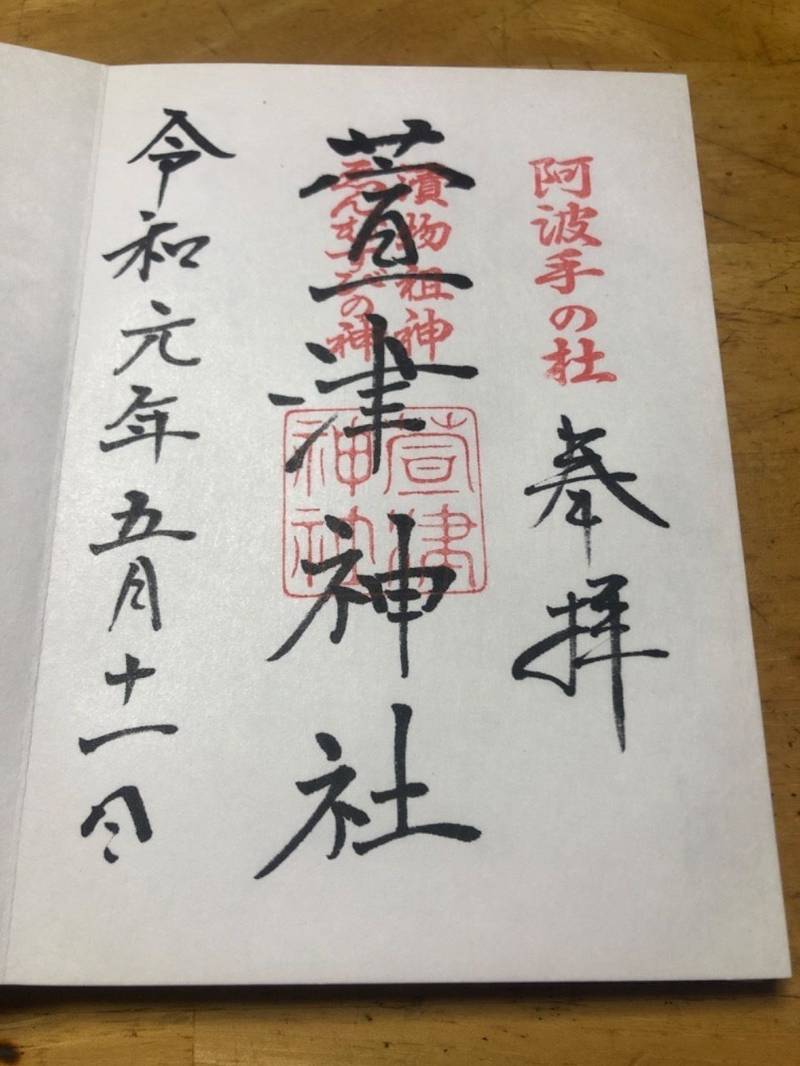 阿波手の杜
奉拝
漬物祖神
縁むすびの神
萱津神社
萱津
神社
令和元年五月十一日